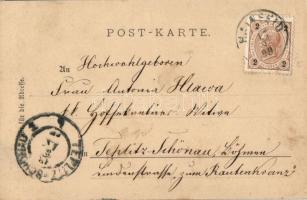 POST-KARTE.
An
Hochwohlgeboren
Frau Antonia Hiawa
k. k. Hoffekontiners Witwe
in Teplitz-Schönau, Böhmen
Lindenstrasse, zum Rautenkranz
für die Adresse.
2 2
TEPLITZ-SCHÖNAU 2